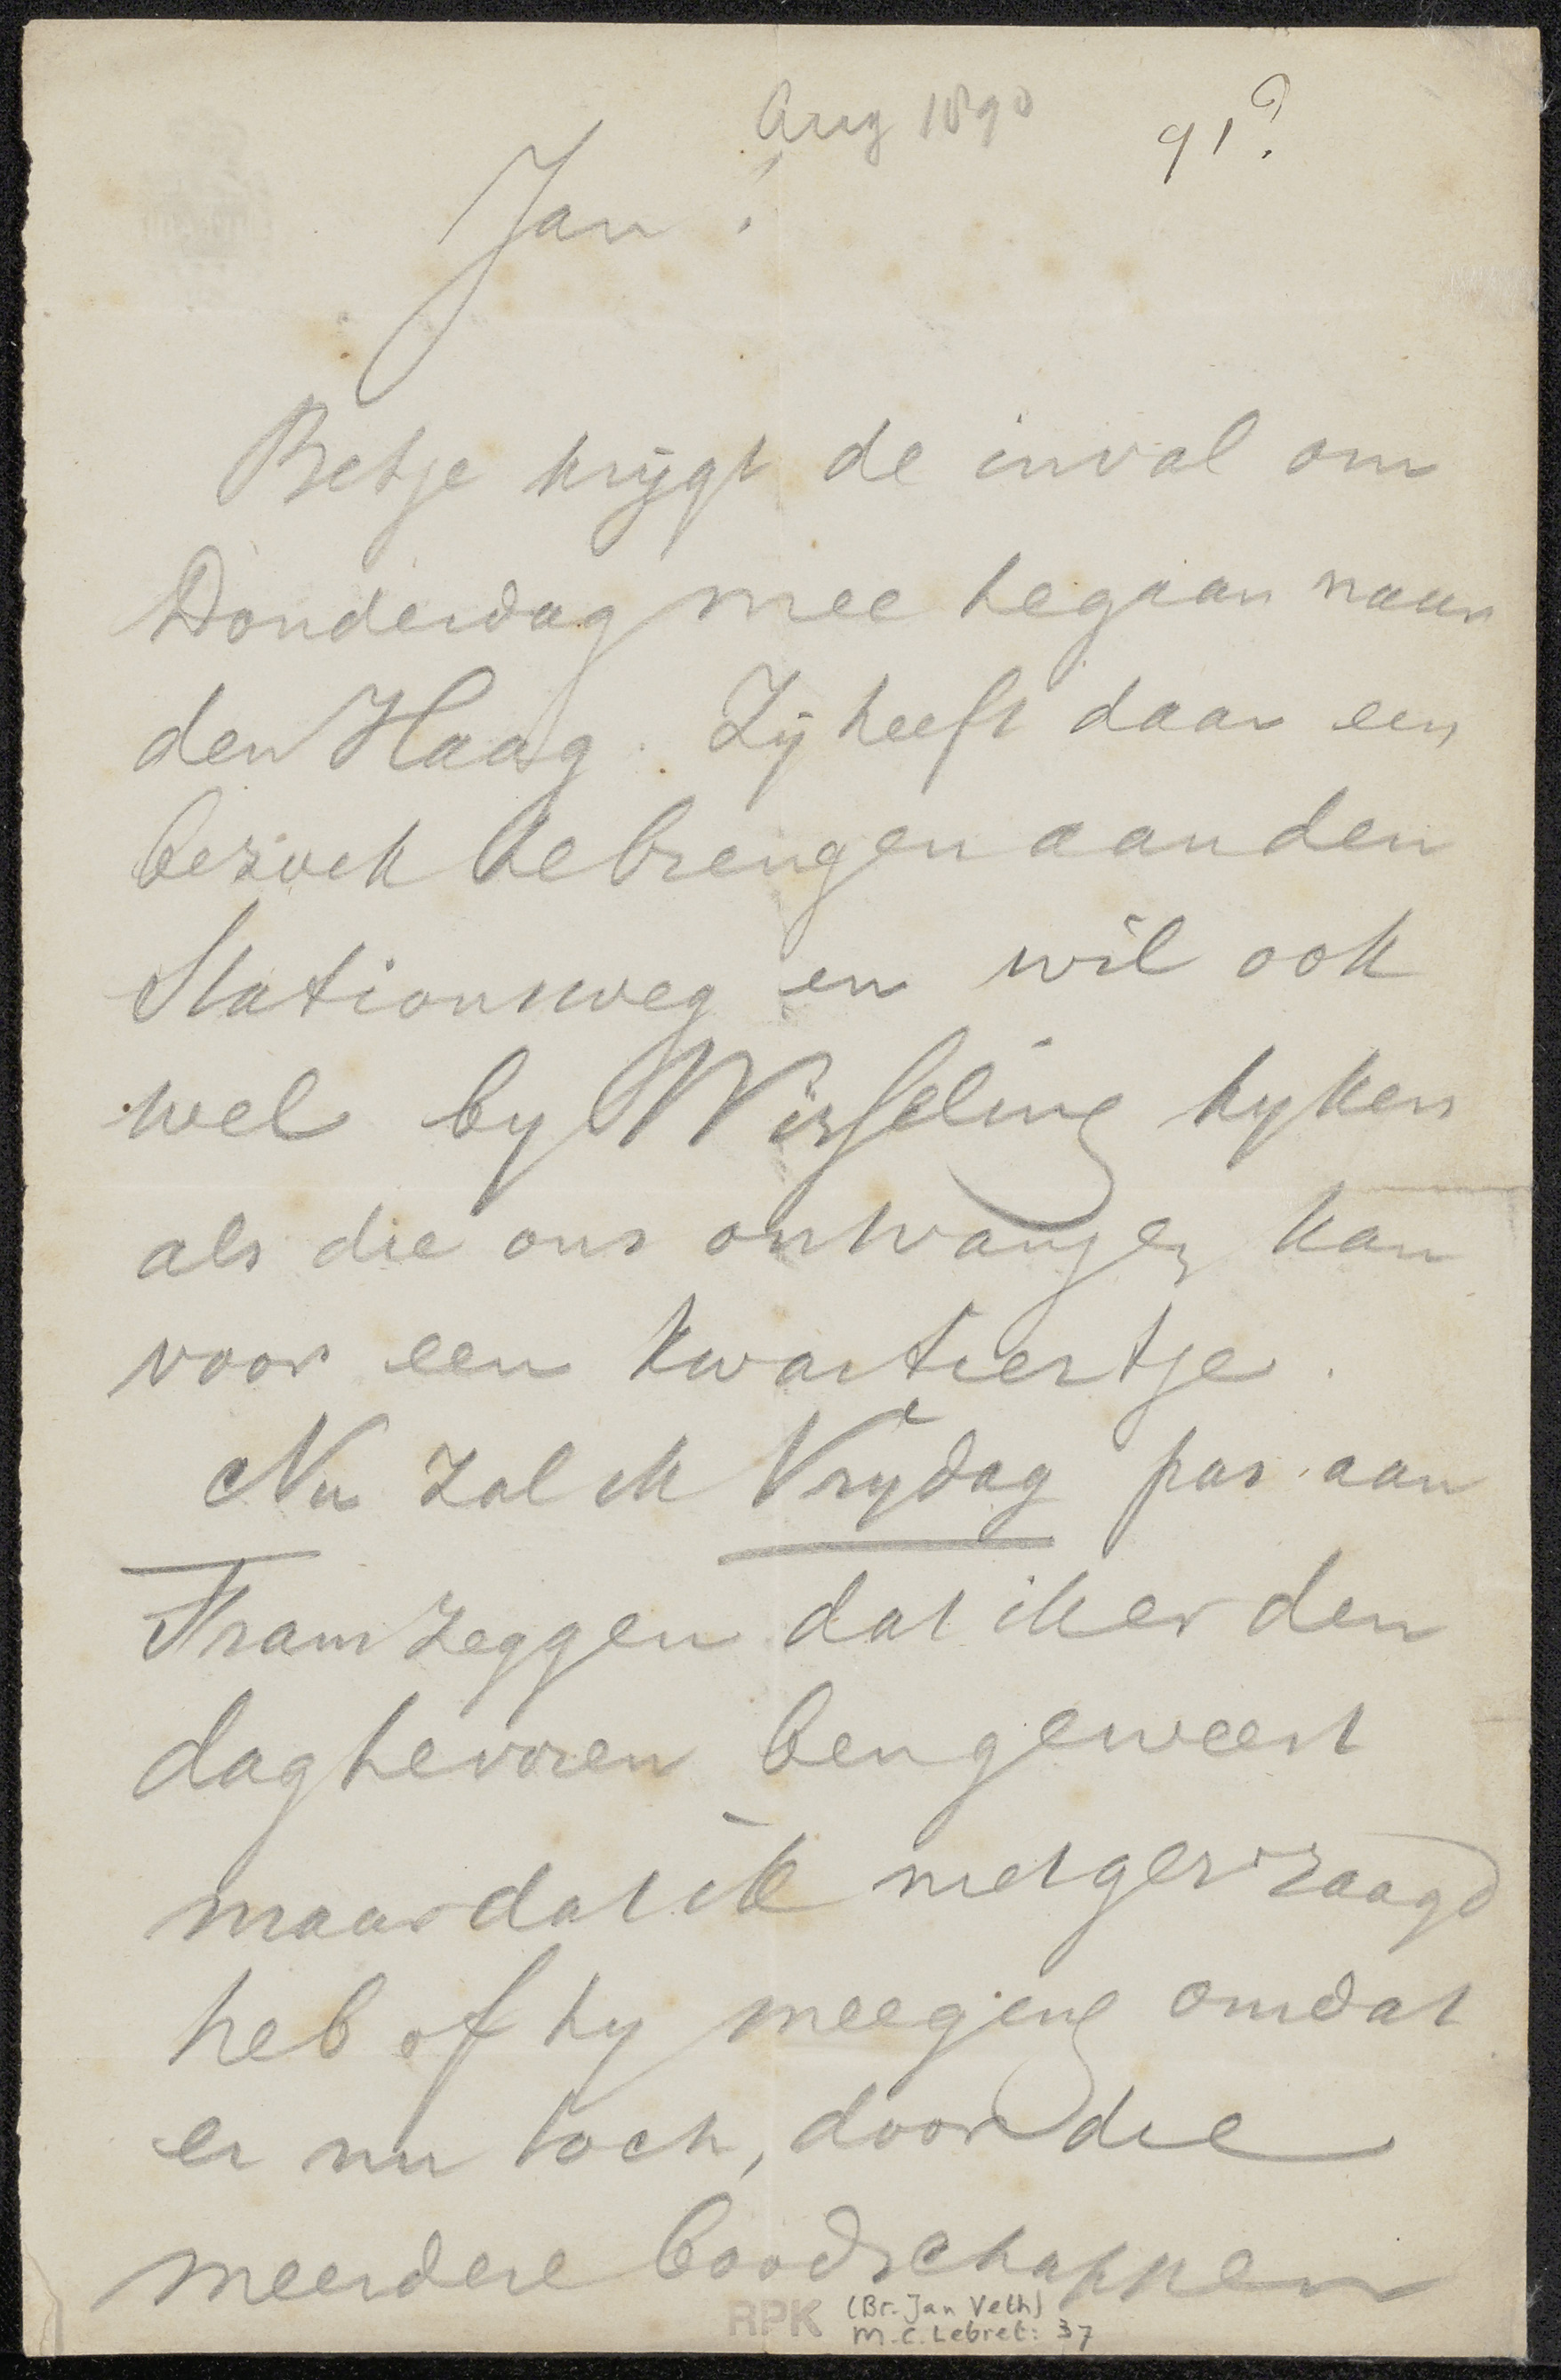 Aug 1890 91?
Jan!
Betje krijgt de inval om
Donderdag mee tegaan naar
den Haag. Zij heeft daar een
bezoek tebrengen aan den
Stationsweg en wil ook
wel by Wisseling kyken
als die ons ontvangen kan
voor een kwartiertje.
Nu zal ik Vrijdag pas aan
Tram zeggen dat iker den
dagtevoren bengeweest
maardat ik nietgevraagd
heb of hy meeging omdat
er nu toch, door die
meerdere boodschappen
RPK (Br. Jan Veth)
M.C. Lebret: 37